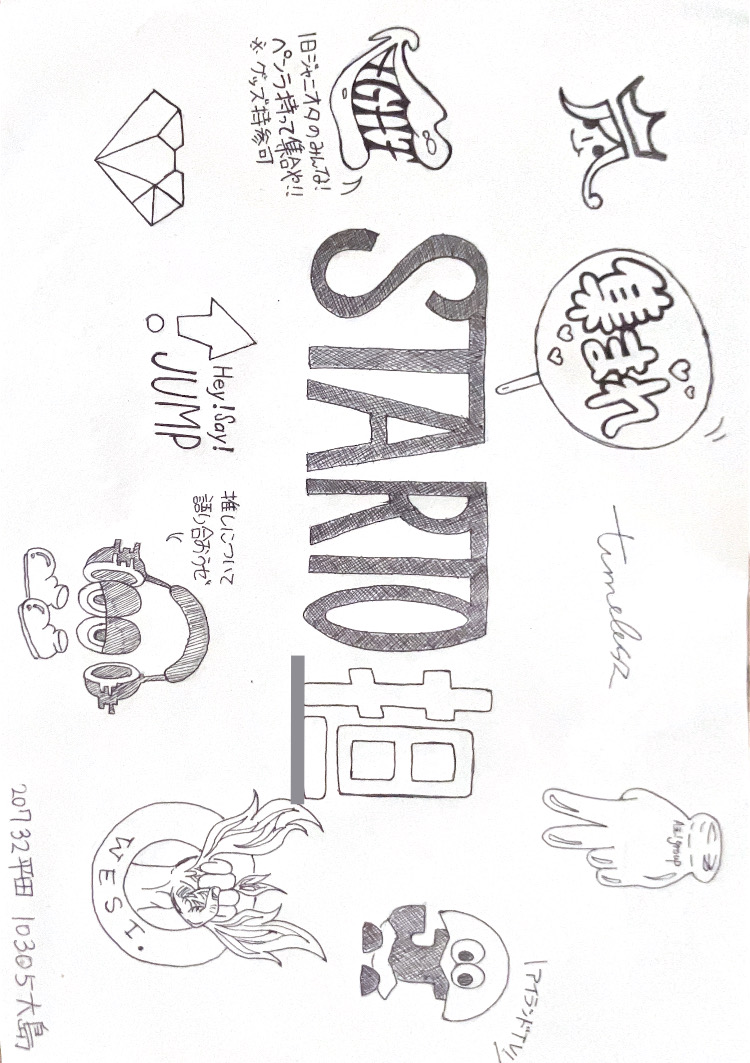 集まれ
timelesz
Aえ! group
\アイランドTV!/
START TO
担
IGHT
旧ジャニオタのみんな!
ペンラ持って集合や!!
※グッズ持参可
Hey!Say!
JUMP
推しについて
語り合おうゼ
WEST.
20732平田 10305大島